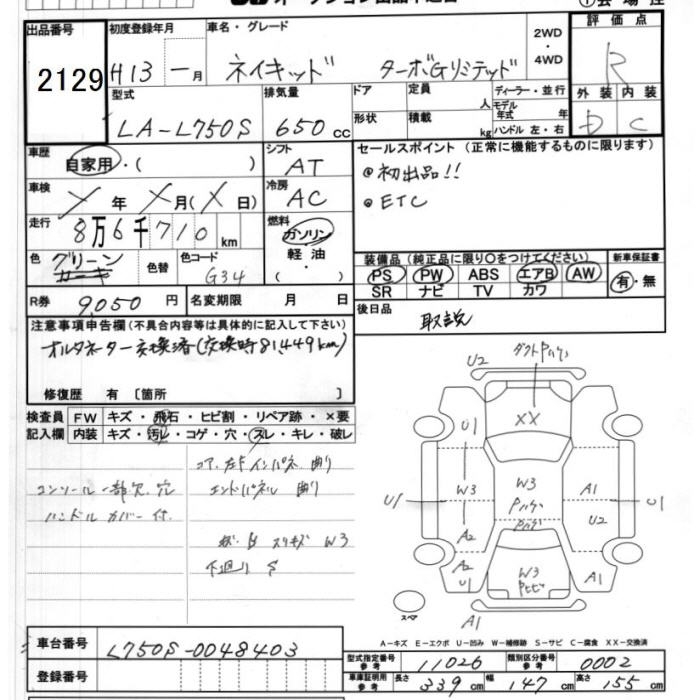 出品番号
2129
初度登録年月
H13 一 月
車名・グレード
ネイキッド ターボGリミテッド
2WD
・
4WD
評価点
R
外装 内装
D C
型式
LA-L750S
排気量
650 cc
ドア
形状
定員 人
積載 kg
ディーラー・並行
モデル年式 年
ハンドル 左・右
車歴
自家用・( )
シフト
AT
セールスポイント (正常に機能するものに限ります)
◎初出品!!
◎ETC
車検
メ 年 メ 月 (メ 日)
冷房
AC
走行
8万6千710 km
燃料
ガソリン
軽油
( )
色
グリーン
カーキ
色替
色コード
G34
装備品 (純正品に限り○をつけてください)
PS PW ABS エアB AW
SR ナビ TV カワ
新車保証書
有・無
R券 9,050 円
名変期限 月 日
後日品
取説
注意事項申告欄(不具合内容等は具体的に記入して下さい)
オルタネーター交換済(交換時81,449km)
修復歴 有 〔箇所 〕
検査員記入欄
FW キズ・飛石・ヒビ割・リペア跡・×要
内装 キズ・汚レ・コゲ・穴・スレ・キレ・破レ
コンソール一部欠.穴
ハンドルカバー付.
コア.左F インパネ 曲り
エンドパネル 曲り
スリキズ W3
下廻り S
U2
XX
U1
W3
A2
A2
U1
U1
W3
W3
A1
U2
A1
U1
スペア
A1
A-キズ E-エクボ U-凹み W-補修跡 S-サビ C-腐食 XX-交換済
車台番号
L750S-0048403
登録番号
型式指定番号参考 11026
類別区分番号参考 0002
車庫証明用参考 長さ 339 cm 幅 147 cm 高さ 155 cm